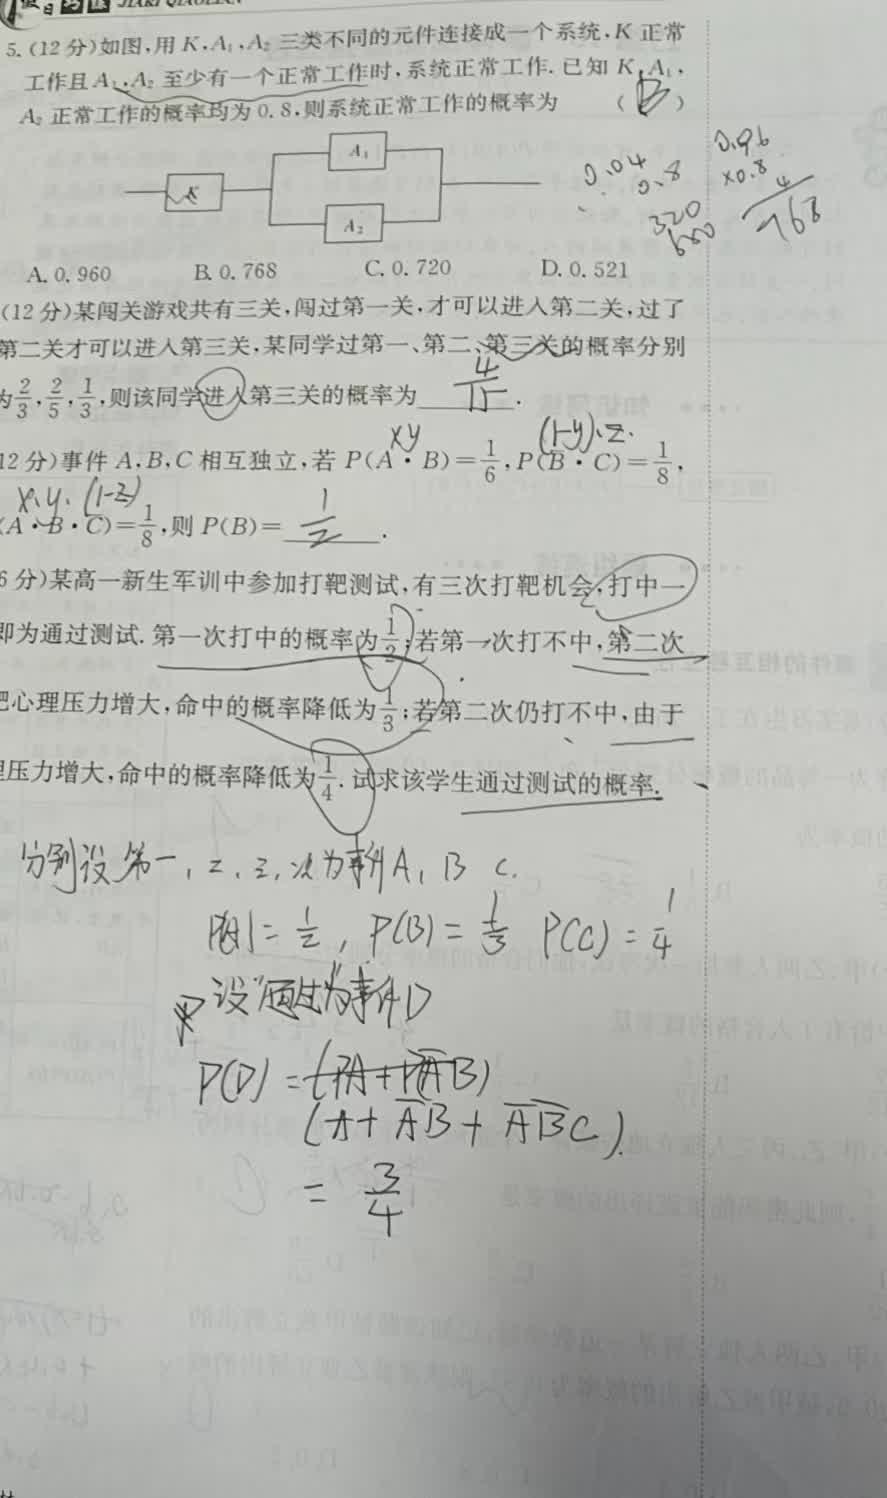 JIARI QIAOLIAN
5. (12分)如图,用 K、A₁、A₂ 三类不同的元件连接成一个系统,K 正常
工作且 A₁、A₂ 至少有一个正常工作时,系统正常工作. 已知 K、A₁、
A₂ 正常工作的概率均为 0.8,则系统正常工作的概率为 ( B )
A₁
K
A₂
0.04
0.8
320
0.96
×0.8
768
A. 0.960 B. 0.768 C. 0.720 D. 0.521
(12分)某闯关游戏共有三关,闯过第一关,才可以进入第二关,过了
第二关才可以进入第三关,某同学过第一、第二、第三关的概率分别
为 2/3, 2/5, 1/3, 则该同学进入第三关的概率为 4/15 .
xy (1-y)·z.
12分)事件 A、B、C 相互独立,若 P(A·B)=1/6, P(B̅·C)=1/8,
x·y·(1-z)
(A·B·C̅)=1/8, 则 P(B)= 1/2 .
6分)某高一新生军训中参加打靶测试,有三次打靶机会,打中一
即为通过测试. 第一次打中的概率为 1/2; 若第一次打不中,第二次
把心理压力增大,命中的概率降低为 1/3; 若第二次仍打不中,由于
理压力增大,命中的概率降低为 1/4. 试求该学生通过测试的概率.
分别设第一,二,三,次为事件A, B C.
P(A)=1/2, P(B)=1/3 P(C)=1/4
设"通过"为事件D
P(D) = (PA+P(A̅B)
(A+A̅B+A̅B̅C).
= 3/4